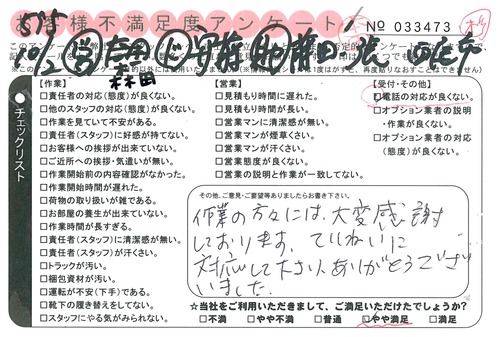 お客様不満足度アンケート
No 033473
チェックリスト
【作業】
□責任者の対応(態度)が良くない。
□他のスタッフの対応(態度)が良くない。
□作業を見ていて不安がある。
□責任者(スタッフ)に好感が持てない。
□お客様への挨拶が出来ていない。
□ご近所への挨拶・気遣いが無い。
□作業開始前の内容確認がなかった。
□作業開始時間が遅れた。
□荷物の取り扱いが雑である。
□お部屋の養生が出来ていない。
□作業時間が長すぎる。
□責任者(スタッフ)に清潔感が無い。
□責任者(スタッフ)が汗くさい。
□トラックが汚い。
□梱包資材が汚い。
□運転が不安(下手)である。
□靴下の履き替えをしてない。
□スタッフにやる気がみられない。
【営業】
□見積もり時間に遅れた。
□見積もり時間が長い。
□営業マンに清潔感が無い。
□営業マンが煙草くさい。
□営業マンが汗くさい。
□営業態度が良くない。
□営業の説明と作業が一致してない。
【受付・その他】
□電話の対応が良くない。
□オプション業者の説明
・作業が良くない。
□オプション業者の対応
(態度)が良くない。
その他、ご意見・ご要望等ありましたらお書き下さい。
作業の方々には、大変感謝
しております。ていねいに
対応して下さいありがとうござ
いました。
☆当社をご利用いただきまして、ご満足いただけたでしょうか?
□不満 □やや不満 □普通 □やや満足 □満足